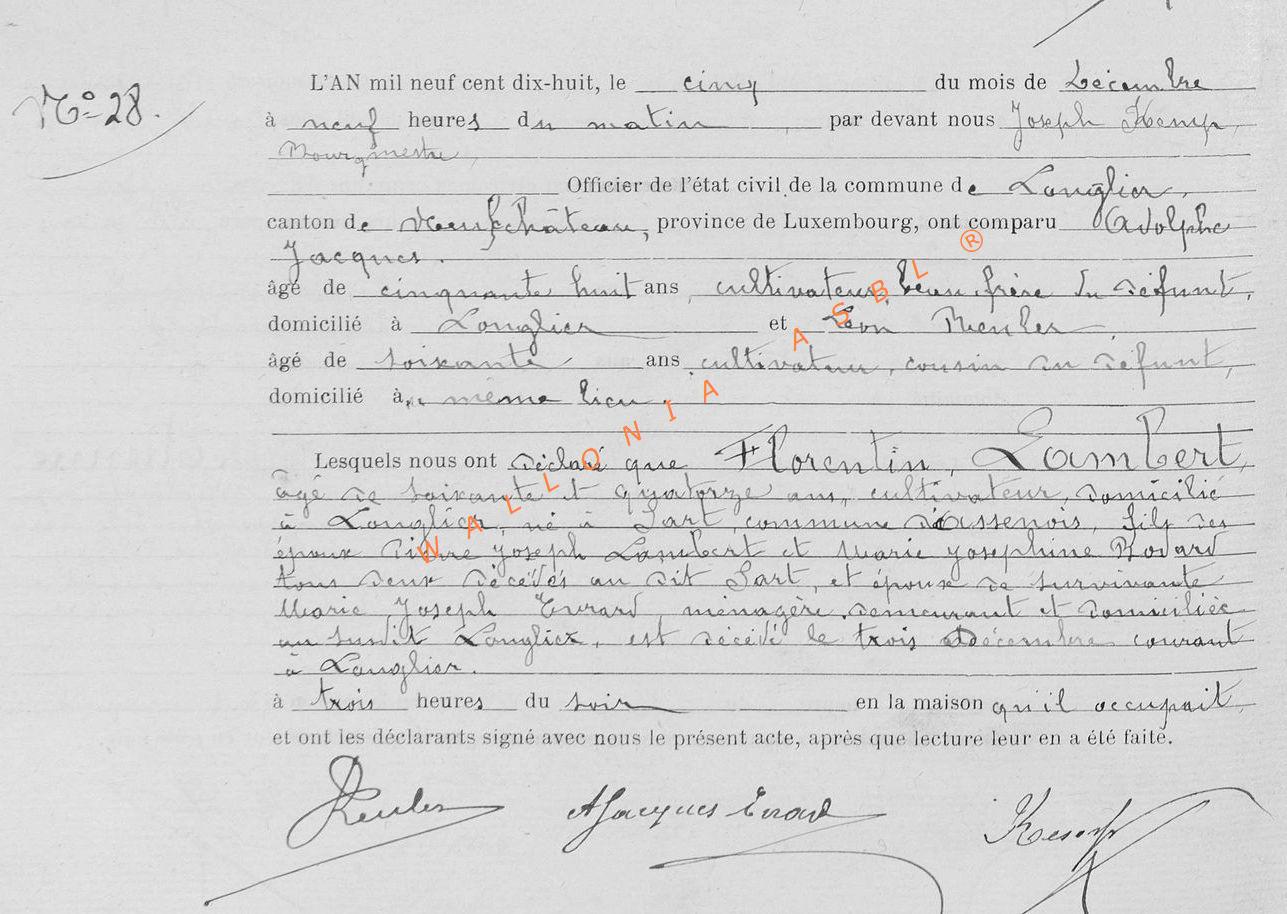 N° 28.
L'AN mil neuf cent dix-huit, le cinq du mois de Décembre
à neuf heures du matin par devant nous Joseph Kemp,
Bourgmestre,
Officier de l'état civil de la commune de Longlier,
canton de Neufchâteau, province de Luxembourg, ont comparu Adolphe
Jacques.
âgé de cinquante huit ans, cultivateur, beau-frère du défunt,
domicilié à Longlier et Léon
âgé de soixante ans, cultivateur, cousin du défunt,
domicilié au même lieu
Lesquels nous ont déclaré que Florentin, Lambert,
âgé de soixante et quatorze ans, cultivateur, domicilié
à Longlier, né à Sart, commune d'Assenois, fils des
époux Pierre Joseph Lambert et Marie Josephine
tous deux décédés au dit Sart, et époux de survivante
Marie Joseph Evrard, ménagère, demeurant et domiciliée
au susdit Longlier, est décédé le trois décembre courant
à Longlier.
à trois heures du soir en la maison qu'il occupait,
et ont les déclarants signé avec nous le présent acte, après que lecture leur en a été faite.
AJacques Evrard
WALLONIA ASBL ®